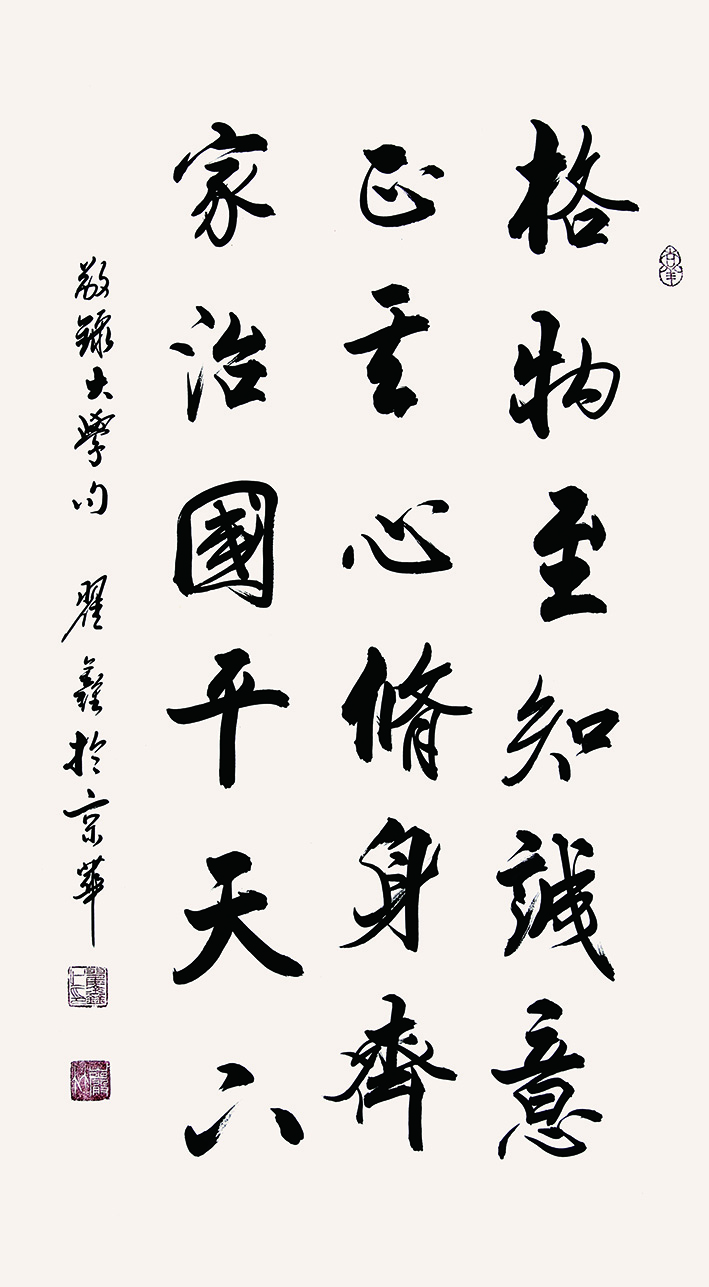 格物至知誠意
正其心脩身齊
家治國平天下
敬録大學句 翟鑫於京華